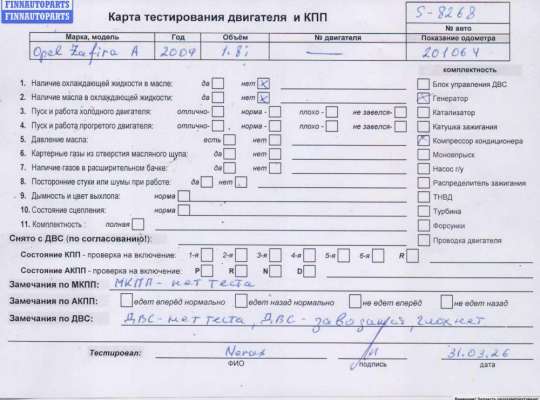 FINNAUTOPARTS
FINNAUTOPARTS
Карта тестирования двигателя и КПП
S-8268
№ авто
Марка, модель Год Объём № двигателя Показание одометра
Opel Zafira A 2004 1.8i — 201064
комплектность
1. Наличие охлаждающей жидкости в масле: да нет x
2. Наличие масла в охлаждающей жидкости: да нет x
3. Пуск и работа холодного двигателя: отлично- норма - плохо - не завелся-
4. Пуск и работа прогретого двигателя: отлично- норма - плохо - не завелся-
5. Давление масла: есть нет
6. Картерные газы из отверстия масляного щупа: да нет
7. Наличие газов в расширительном бачке: да нет
8. Посторонние стуки или шумы при работе: да нет
9. Дымность и цвет выхлопа: норма
10. Состояние сцепления: норма
11. Комплектность : полная
Блок управления ДВС
Генератор
Катализатор
Катушка зажигания
Компрессор кондиционера
Моновпрыск
Насос г/у
Распределитель зажигания
ТНВД
Турбина
Форсунки
Проводка двигателя
Снято с ДВС (по согласованию!):
Состояние КПП - проверка на включение: 1-я 2-я 3-я 4-я 5-я 6-я R
Состояние АКПП - проверка на включение: P R N D
Замечания по МКПП: МКПП - нет теста
Замечания по АКПП: едет вперёд нормально едет назад нормально не едет вперёд не едет назад
Замечания по ДВС: ДВС - нет теста, ДВС - заводится, глохнет
Тестировал: 31.03.26
ФИО подпись дата